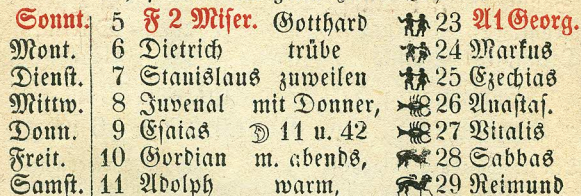 Sonnt. 5 F 2 Miser. Gotthard 23 A1 Georg.
Mont. 6 Dietrich trübe 24 Markus
Dienst. 7 Stanislaus zuweilen 25 Ezechias
Mittw. 8 Juvenal mit Donner, 26 Anastas.
Donn. 9 Esaias ☽ 11 u. 42 27 Vitalis
Freit. 10 Gordian m. abends, 28 Sabbas
Samst. 11 Adolph warm, 29 Reimund